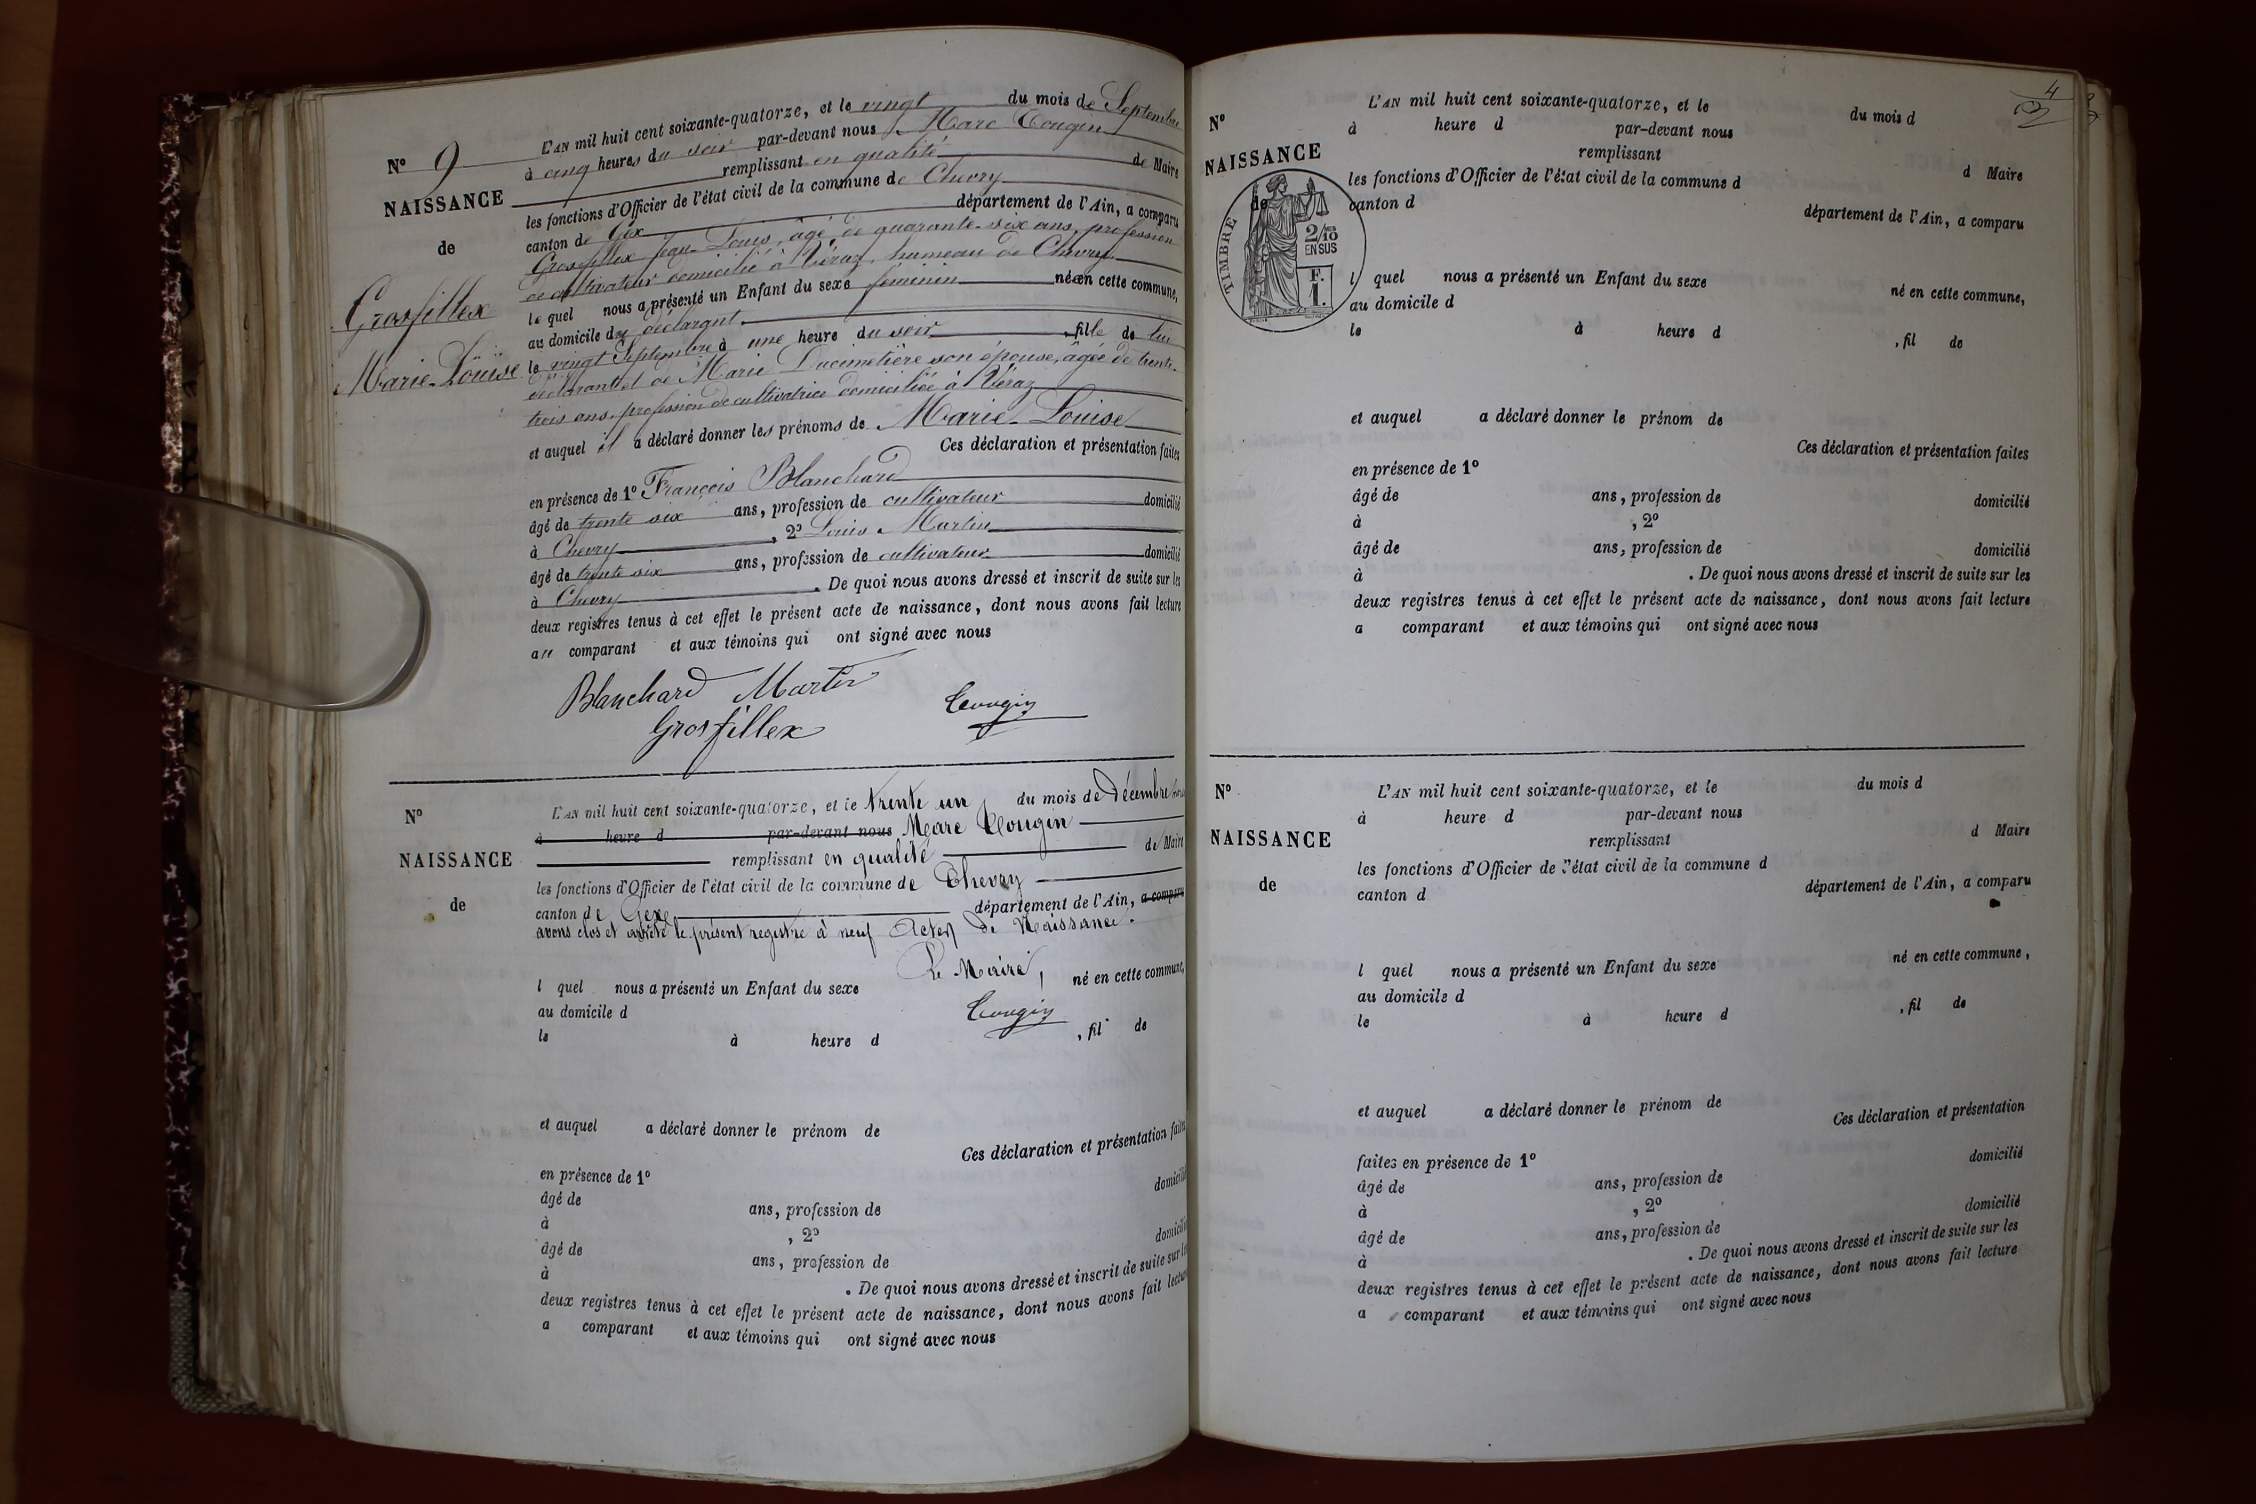 N° 9
NAISSANCE
de
Grosfillex
Marie-Louise
L'AN mil huit cent soixante-quatorze, et le vingt du mois de Septembre
à cinq heures du soir par-devant nous Marc Tougin
remplissant en qualité de Maire
les fonctions d'Officier de l'état civil de la commune de Chevry
canton de Gex département de l'Ain, a comparu
Grosfillex Jean-Louis, âgé de quarante-six ans, profession
de cultivateur domicilié à Véraz, hameau de Chevry
lequel nous a présenté un Enfant du sexe féminin née en cette commune,
au domicile du déclarant
le vingt Septembre à une heure du soir, fille de lui
déclarant et de Marie Ducimetière son épouse, âgée de trente-
trois ans, profession de cultivatrice domiciliée à Véraz
et auquel il a déclaré donner les prénoms de Marie-Louise
Ces déclaration et présentation faites
en présence de 1° François Blanchard
âgé de trente six ans, profession de cultivateur domicilié
à Chevry, 2° Louis Martin
âgé de trente six ans, profession de cultivateur domicilié
à Chevry. De quoi nous avons dressé et inscrit de suite sur les
deux registres tenus à cet effet le présent acte de naissance, dont nous avons fait lecture
au comparant et aux témoins qui ont signé avec nous
Blanchard Martin
Grosfillex Tougin
N°
NAISSANCE
de
L'AN mil huit cent soixante-quatorze, et le trente un du mois de Décembre
à heure d par-devant nous Marc Tougin
remplissant en qualité de Maire
les fonctions d'Officier de l'état civil de la commune de Chevry
canton de Gex département de l'Ain, a comparu
avons clos et arrêté le présent registre à neuf Actes de Naissance.
Le Maire,
l quel nous a présenté un Enfant du sexe né en cette commune,
au domicile d
Tougin
le à heure d , fil de
et auquel a déclaré donner le prénom de
Ces déclaration et présentation faites
en présence de 1°
domicilié
âgé de ans, profession de
à , 2°
domicilié
âgé de ans, profession de
à . De quoi nous avons dressé et inscrit de suite sur les
deux registres tenus à cet effet le présent acte de naissance, dont nous avons fait lecture
a comparant et aux témoins qui ont signé avec nous
4
N°
NAISSANCE
de
TIMBRE
2/10
EN SUS
F.
1.
L'AN mil huit cent soixante-quatorze, et le du mois d
à heure d par-devant nous
remplissant d Maire
les fonctions d'Officier de l'état civil de la commune d
canton d département de l'Ain, a comparu
l quel nous a présenté un Enfant du sexe né en cette commune,
au domicile d
le à heure d , fil de
et auquel a déclaré donner le prénom de
Ces déclaration et présentation faites
en présence de 1°
âgé de ans, profession de domicilié
à , 2°
âgé de ans, profession de domicilié
à . De quoi nous avons dressé et inscrit de suite sur les
deux registres tenus à cet effet le présent acte de naissance, dont nous avons fait lecture
a comparant et aux témoins qui ont signé avec nous
N°
NAISSANCE
de
L'AN mil huit cent soixante-quatorze, et le du mois d
à heure d par-devant nous
remplissant d Maire
les fonctions d'Officier de l'état civil de la commune d
canton d département de l'Ain, a comparu
l quel nous a présenté un Enfant du sexe né en cette commune,
au domicile d
le à heure d , fil de
et auquel a déclaré donner le prénom de
Ces déclaration et présentation
faites en présence de 1°
domicilié
âgé de ans, profession de
à , 2°
domicilié
âgé de ans, profession de
à . De quoi nous avons dressé et inscrit de suite sur les
deux registres tenus à cet effet le présent acte de naissance, dont nous avons fait lecture
a comparant et aux témoins qui ont signé avec nous